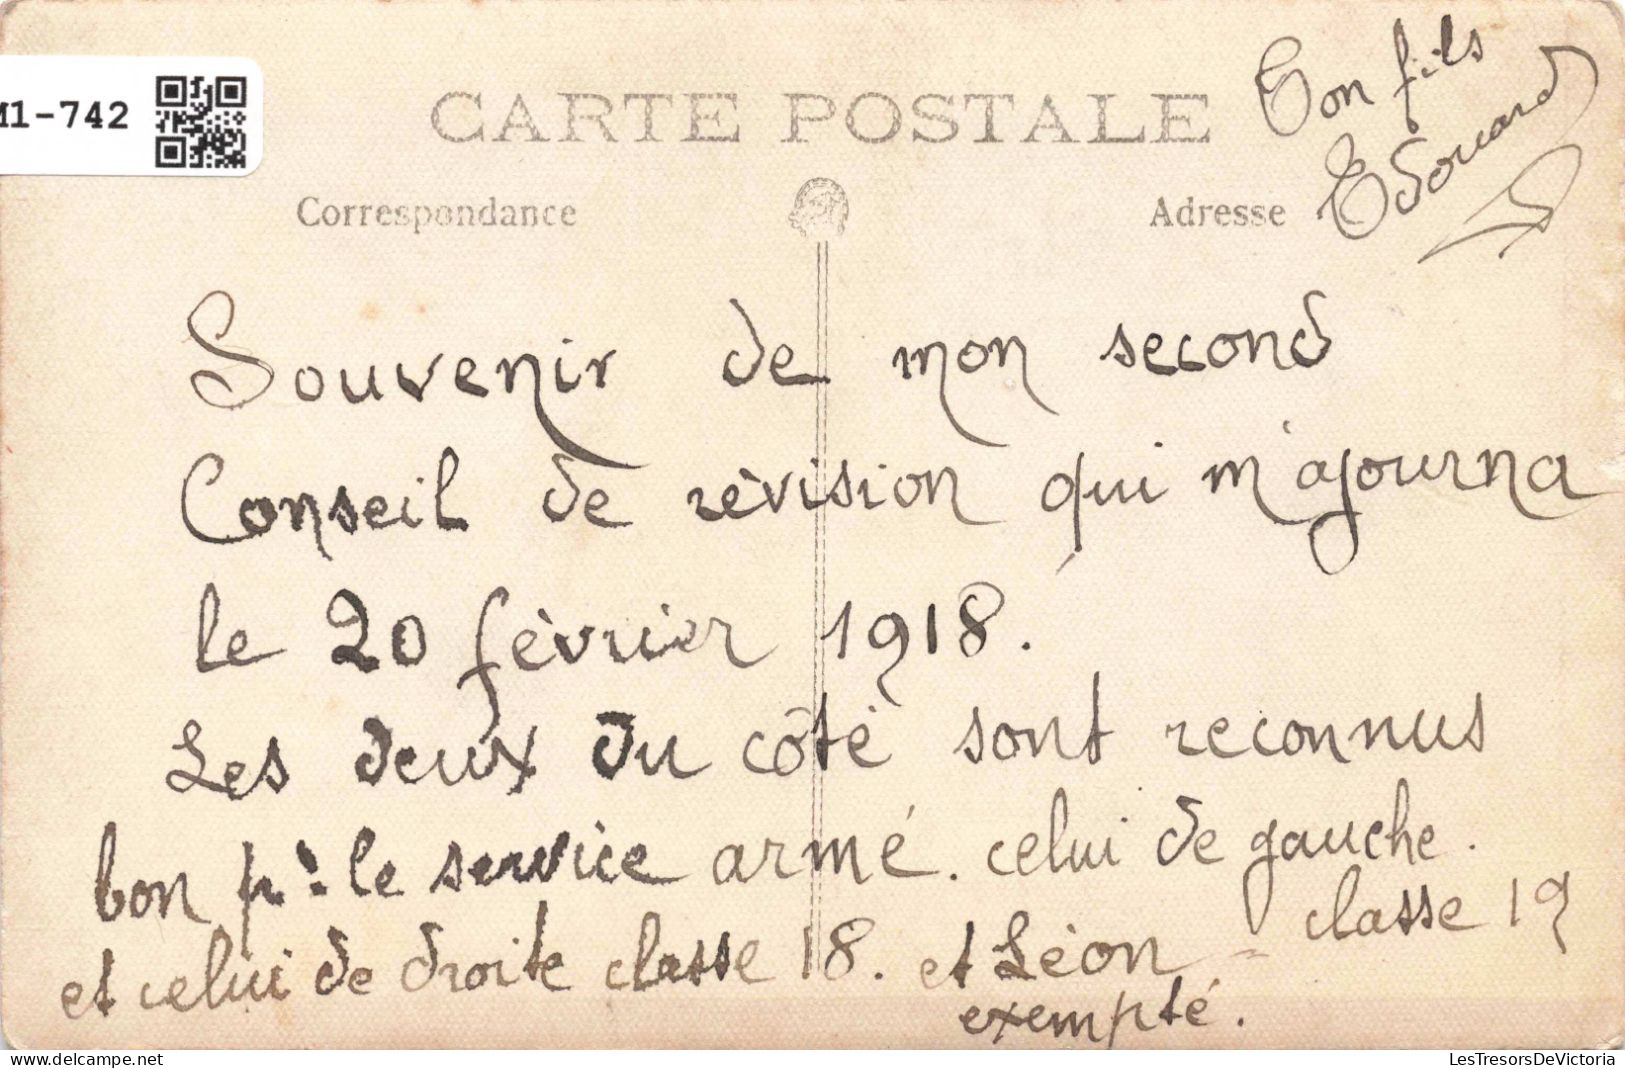 M1-742
CARTE POSTALE
Ton fils
Edouard
Correspondance
Adresse
Souvenir de mon second
Conseil de révision qui m'ajourna
le 20 février 1918.
Les deux du côté sont reconnus
bon pr le service armé. celui de gauche.
classe 19
et celui de droite classe 18. et Léon
exempté.
delcampe.net
LesTresorsDeVictoria